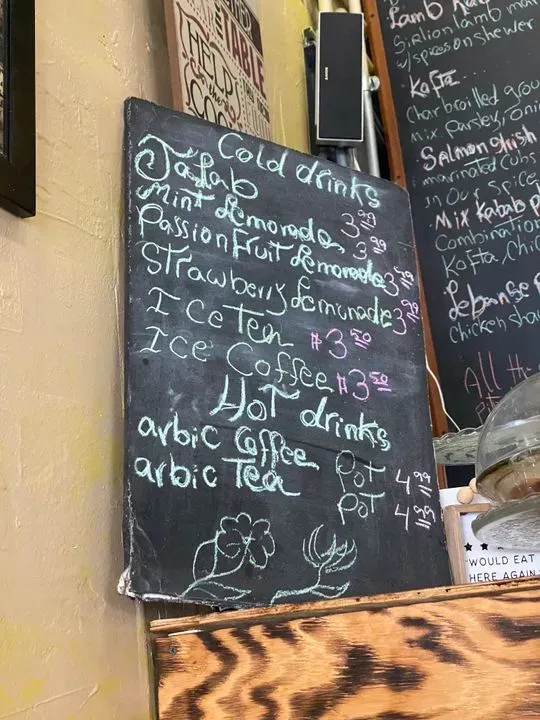 Cold drinks
Jalab 3.99
Mint Lemonade 3.99
Passion Fruit Lemonade 3.99
Strawberry Lemonade 3.99
Ice Tea $3.50
Ice Coffee $3.50
Hot drinks
arbic Coffee Pot 4.99
arbic Tea Pot 4.99
TABLE
HELP
the
Lamb
Sirlion Lamb
w/spices on shewer
Kafta
Charbroilled
mix Parsley,
Salmon shish
marinated cubs
in Our Spice
Mix Kabab
Combination
Kafta, Chic
Lebanse
Chicken
All the
"WOULD EAT
HERE AGAIN"